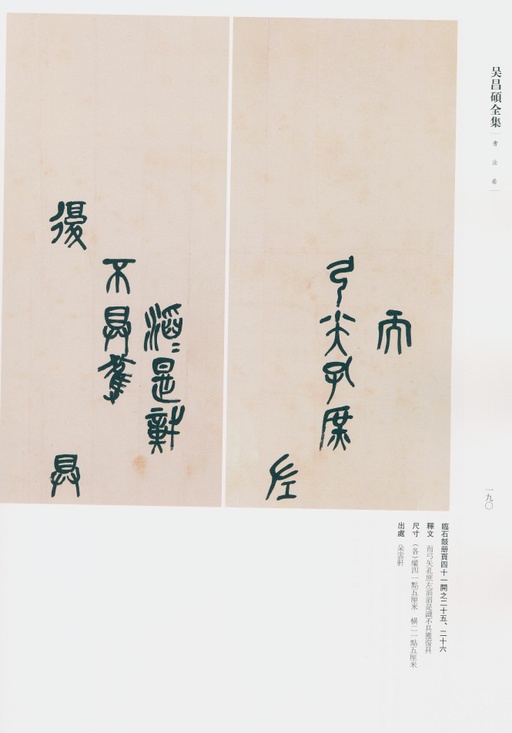 吴昌碩全集
書法卷
一九〇
而
弓矢孔庶
左
滔=是
不具
復
具
臨石鼓册頁四十一開之二十五、二十六
釋文 而弓矢孔庶左滔滔是識不具獲復具
尺寸 (各)縱四一點五厘米 橫二一點五厘米
出處 朵雲軒